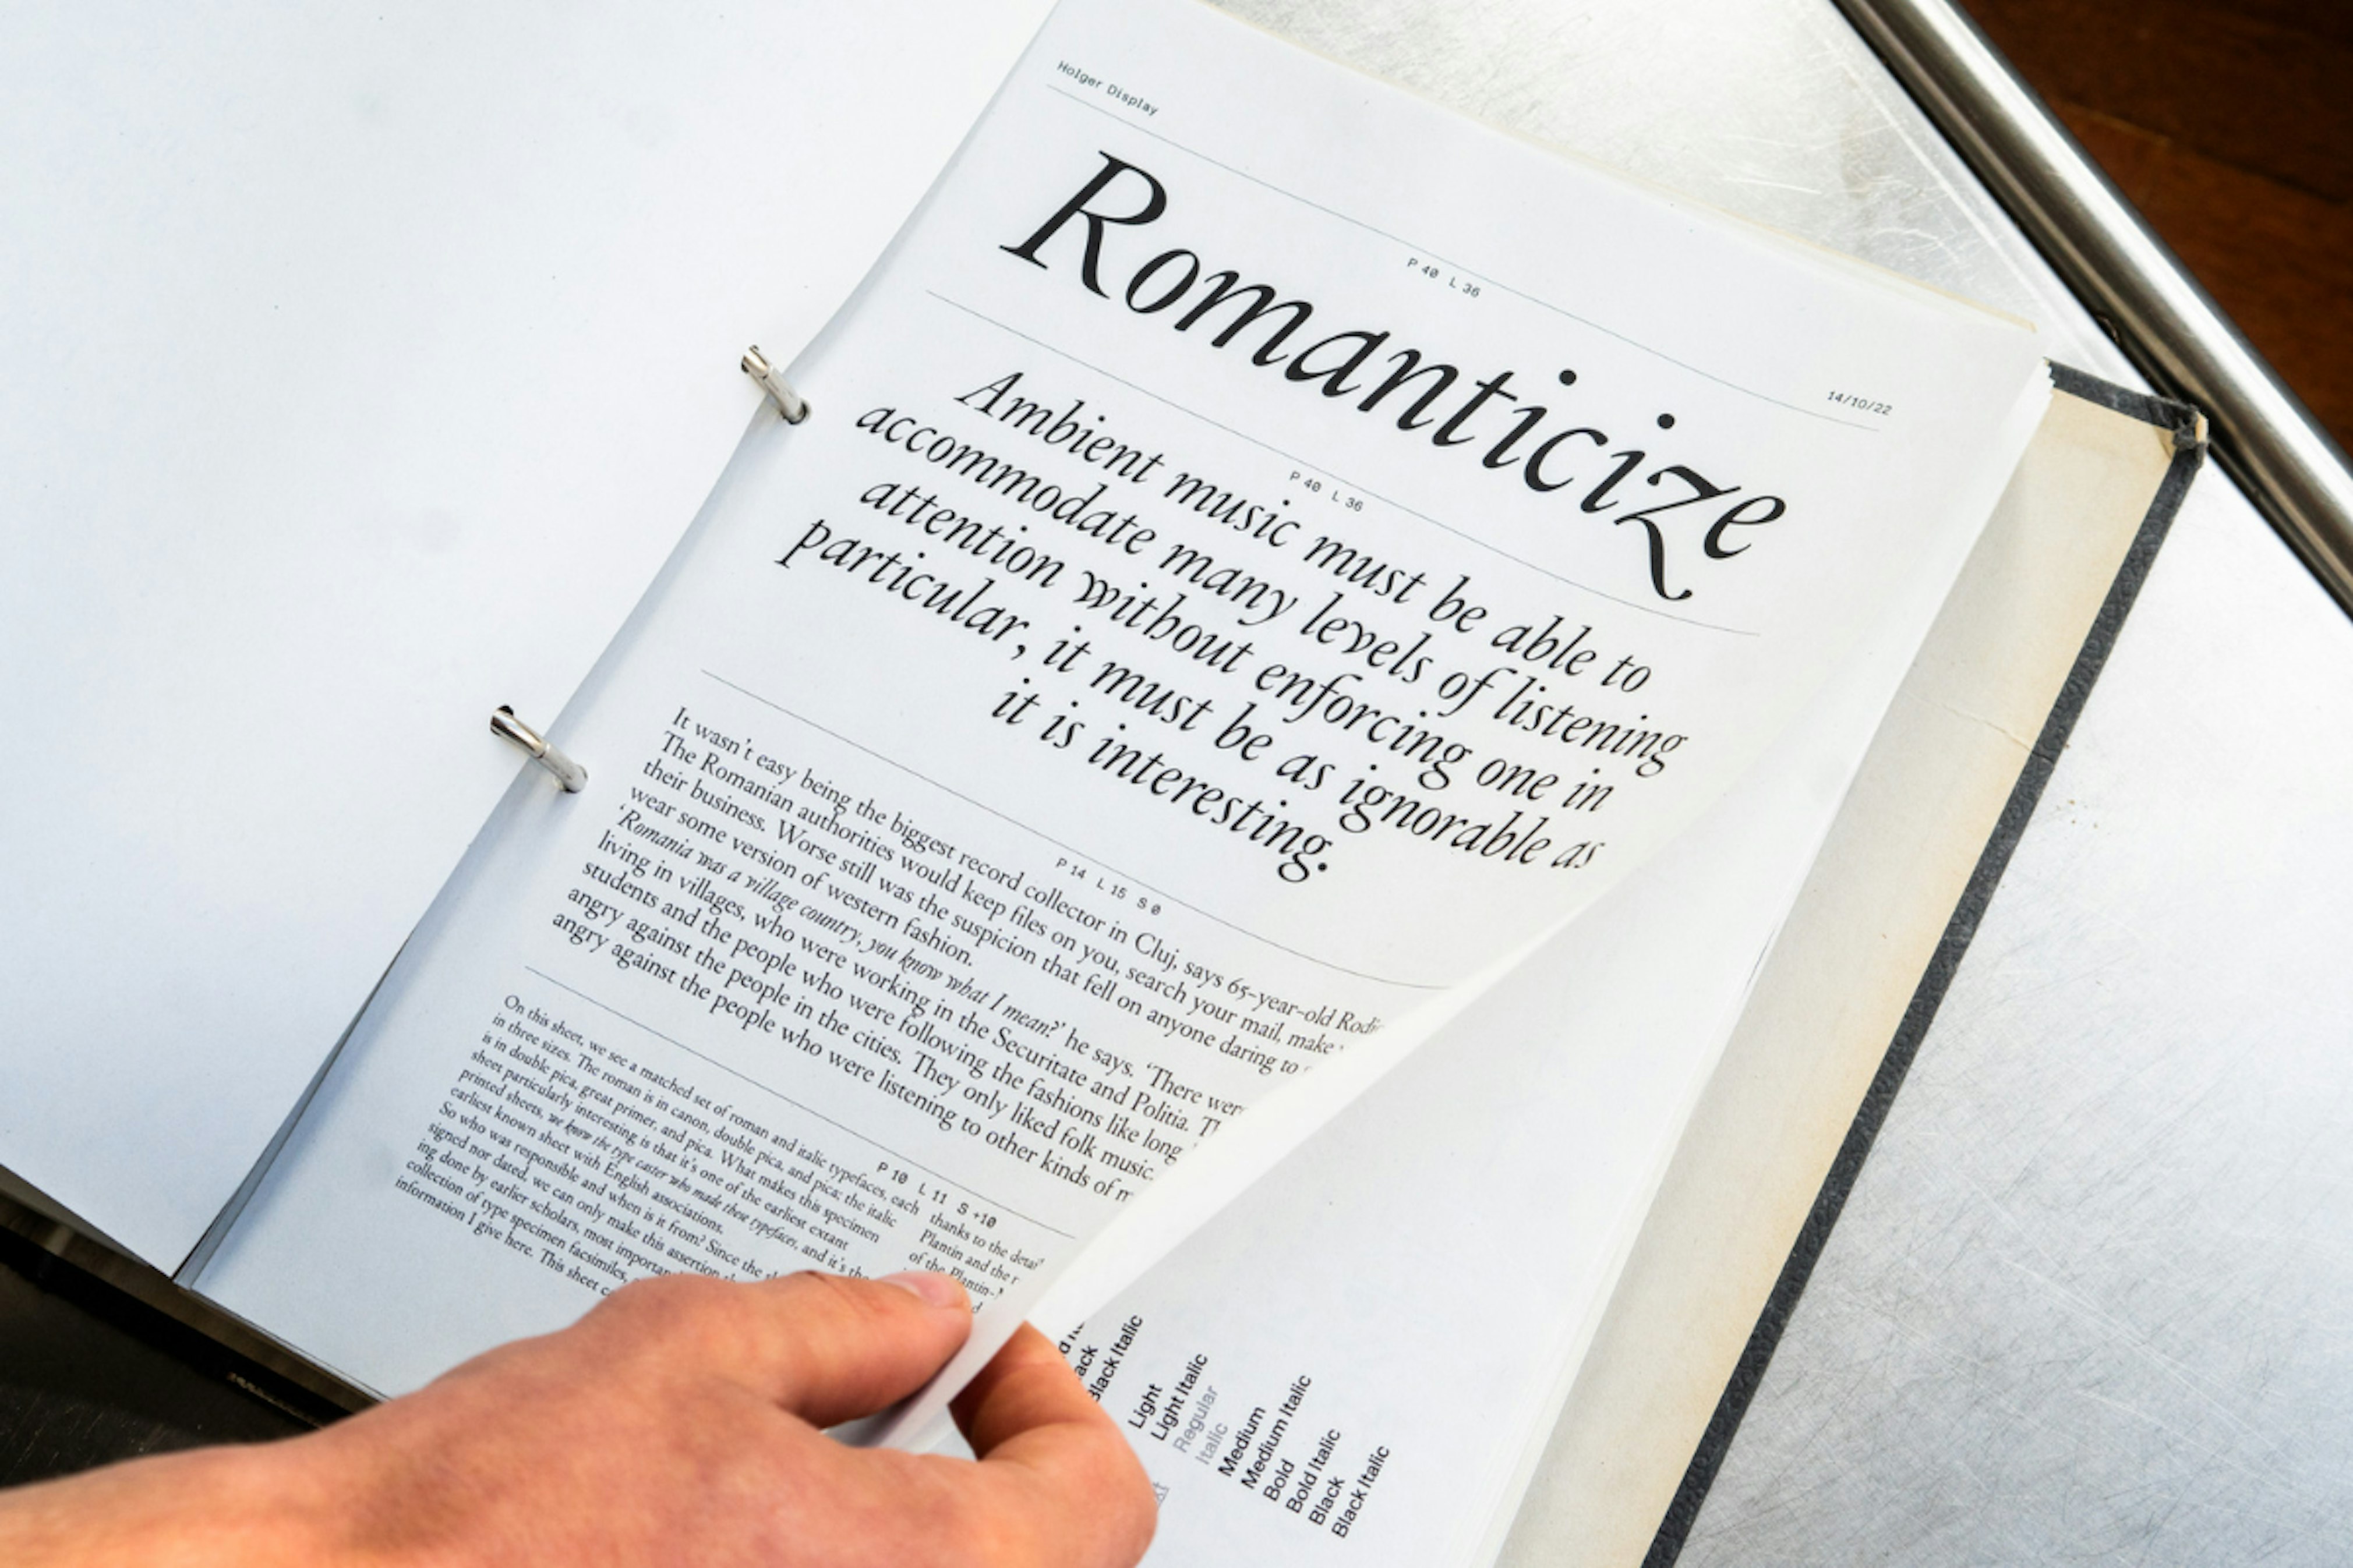 Holger Display
14/10/22
P 40 L 36
Romanticize
P 40 L 36
Ambient music must be able to
accommodate many levels of listening
attention without enforcing one in
particular, it must be as ignorable as
it is interesting.
P 14 L 15 S 0
It wasn't easy being the biggest record collector in Cluj, says 65-year-old
The Romanian authorities would keep files on you, search your mail, make
their business. Worse still was the suspicion that fell on anyone daring to
wear some version of western fashion.
‘Romania was a village country, you know what I mean?’ he says. ‘There were
living in villages, who were working in the Securitate and Politia.
students and the people who were following the fashions like long
angry against the people in the cities. They only liked folk music.
angry against the people who were listening to other kinds of
P 10 L 11 S +10
On this sheet, we see a matched set of roman and italic typefaces, each
in three sizes. The roman is in canon, double pica, and pica; the italic
is in double pica, great primer, and pica. What makes this specimen
sheet particularly interesting is that it's one of the earliest extant
printed sheets, we know the type caster who made these typefaces, and it's the
earliest known sheet with English associations.
So who was responsible and when is it from? Since the
signed nor dated, we can only make this assertion
ing done by earlier scholars, most
collection of type specimen facsimiles,
information I give here. This sheet
thanks to the
Plantin and the
of the
Black Italic
Light
Light Italic
Regular
Italic
Medium
Medium Italic
Bold
Bold Italic
Black
Black Italic